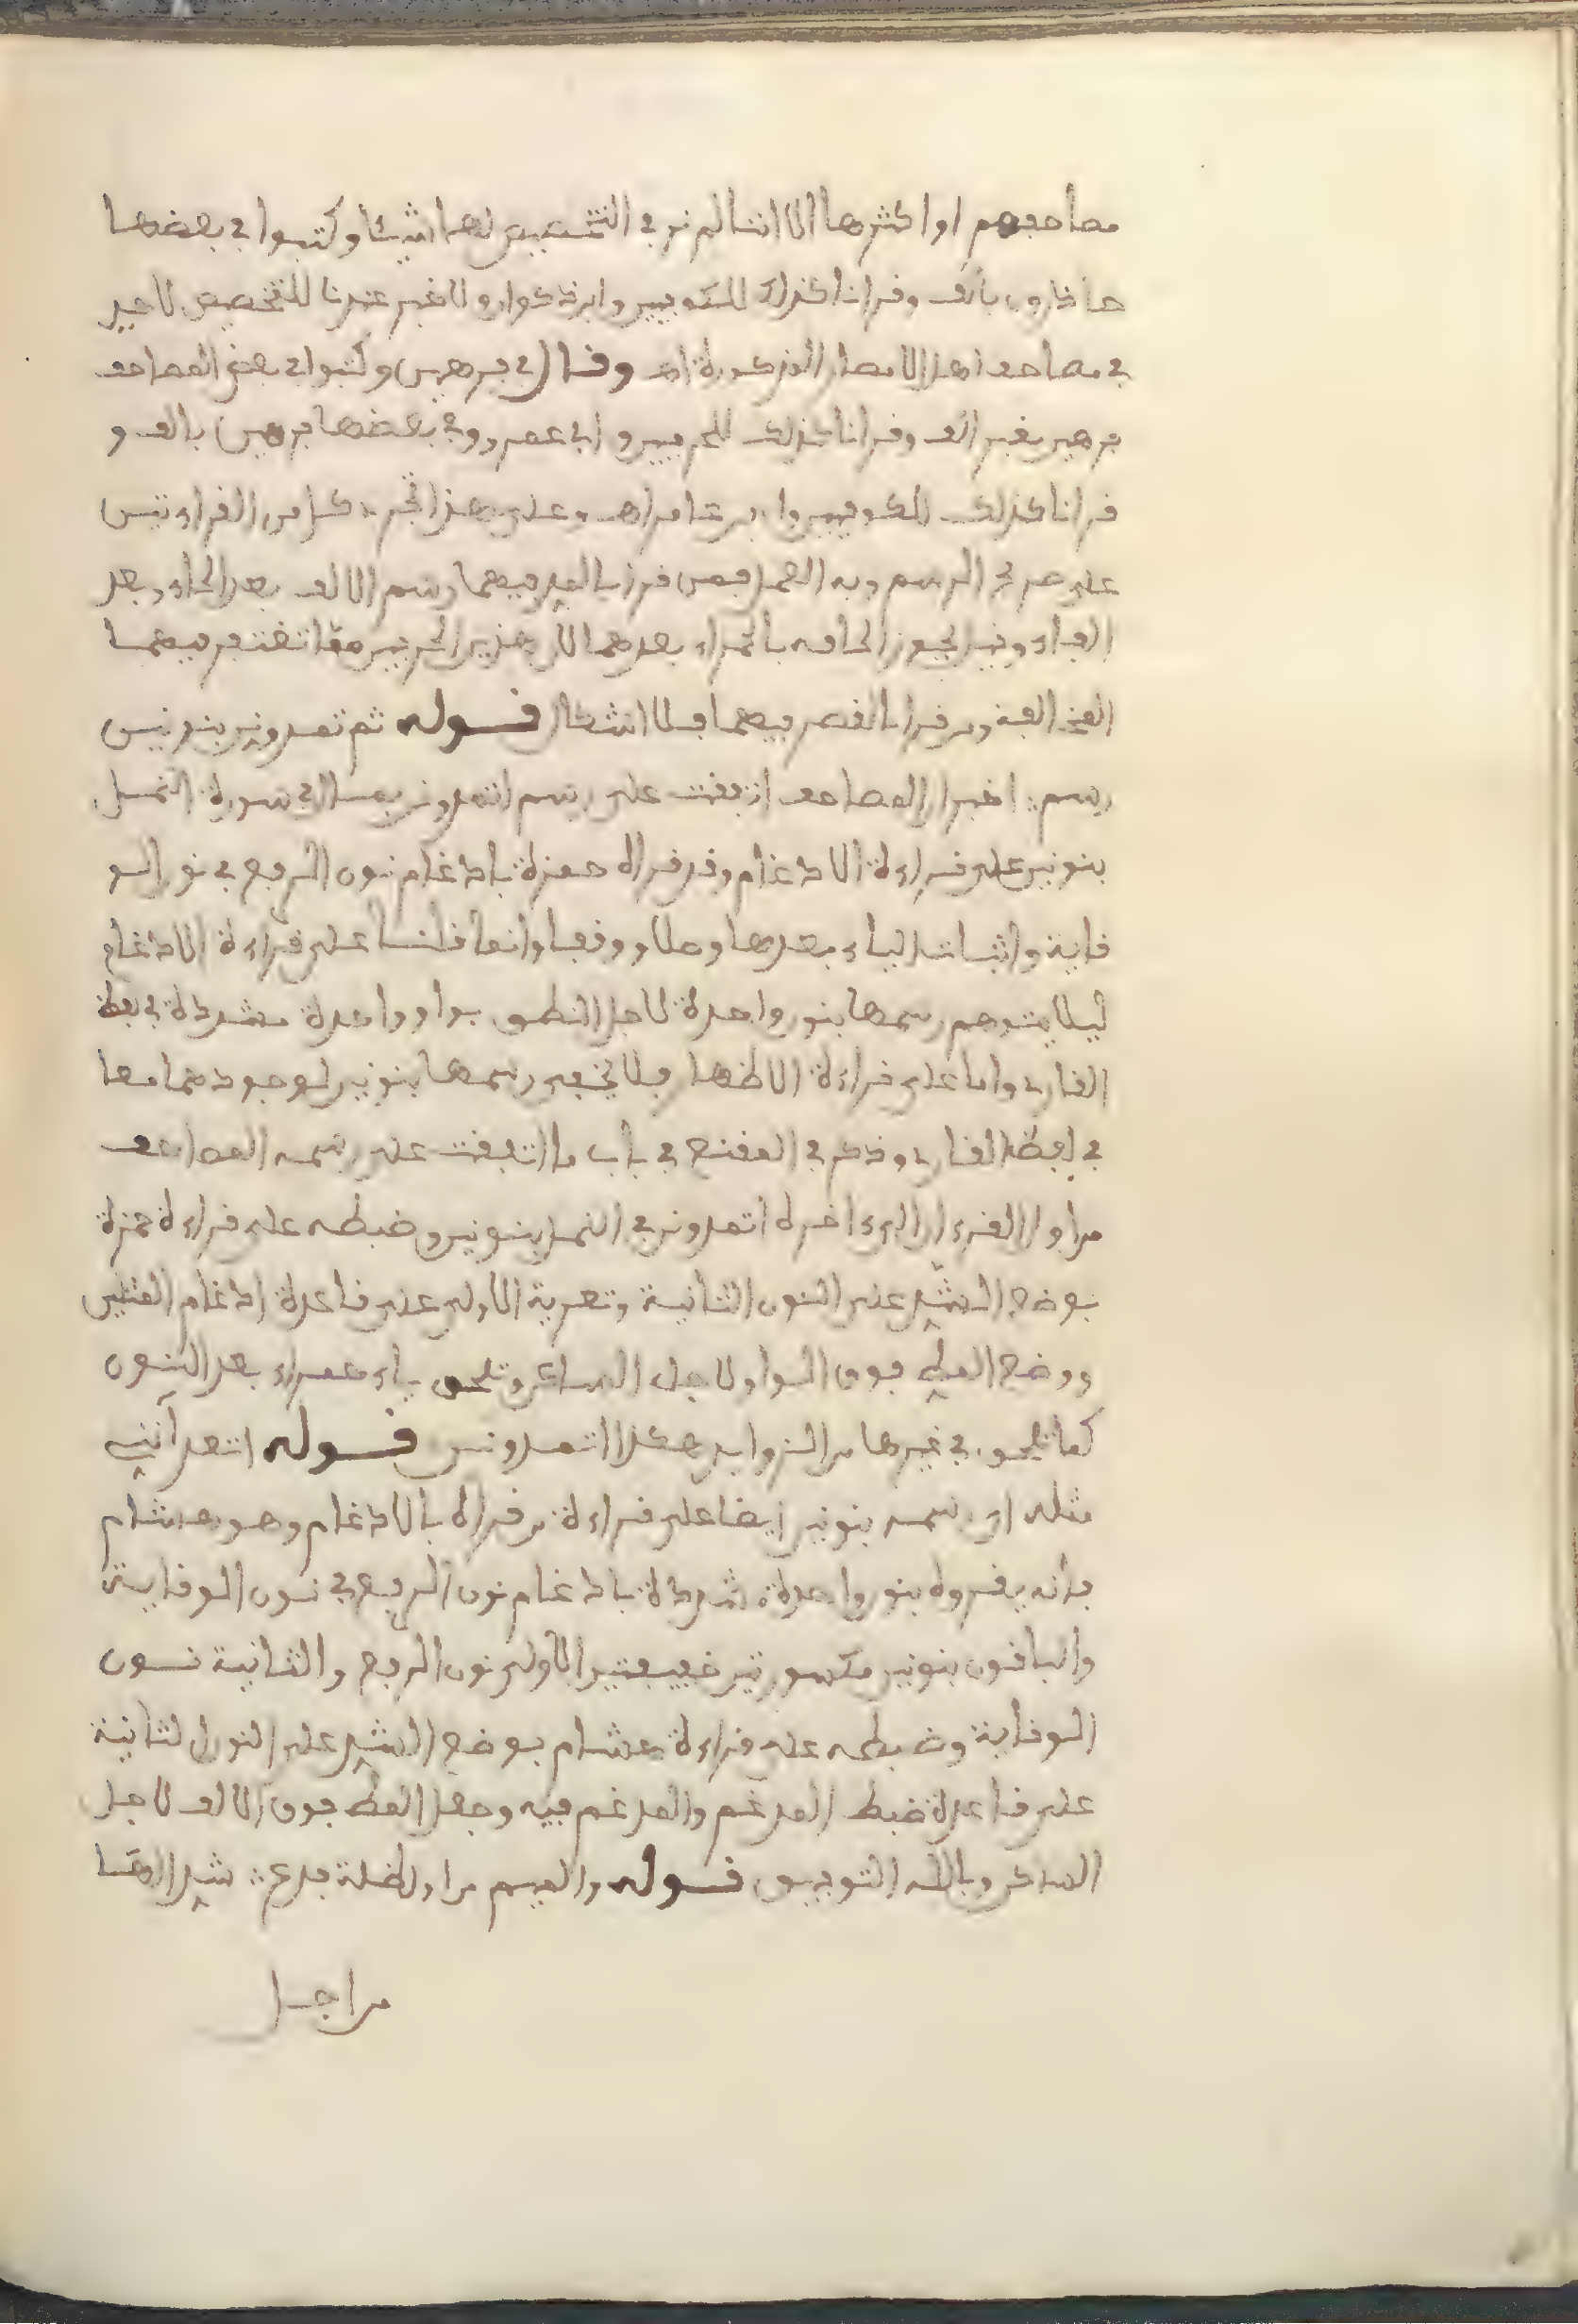 مصاحفهم او اكثرها الا اننا لم نر في التخصيص لها شيئا وكتبوا في بعضها
حاذرون بألف وقرانا كذلك للكوفيين وابن ذكوان ولا خبر عندنا للتخصيص لاحد
في مصاحف اهل الامصار المذكورة اهـ وقال في فرهين وكتبوا في بعض المصاحف
فرهين بغير الف وقرانا كذلك للحرميين وابي عمرو وفي بعضها فرهين بالف و
قرانا كذلك للكوفيين وابن عامر اهـ وعلى هذا تجر كل من القراءتين
على صريح الرسم وبه العمل فمن قرا بالمد فيهما رسم الالف بعد الحاء وبعد
الفاء وقيل يجوز الحاقه بالحمراء بعدهما لان هذين الحرفين مما تفتقر فيهما
العين الفه ومن قرا بالقصر فيهما فلا اشكال قوله ثم تمدونن بنونين
رسم اخبر ان المصاحف اتفقت على رسم اتمدونن بمال في سورة النمل
بنونين على قراءة الادغام وقد قراه حمزة بادغام نون الرفع في نون الو
قاية واثبات الياء بعدها وصلا ووقفا وانما قلنا على قراءة الادغام
ليلا يتوهم رسمها بنون واحدة لاجل النطق بواو واحدة مشددة في لفظ
القارئ واما على قراءة الاظهار فلا يخفى رسمها بنونين لوجودهما معا
في لفظ القارئ وذكر في المقنع في باب ما اتفقت على رسمه المصاحف
من اول القرءان الى ءاخره اتمدونن في النمل بنونين وضبطه على قراءة حمزة
بوضع الشد على النون الثانية وتعرية الاولى على قاعدة ادغام المثلين
ووضع المط فوق الواو لاجل الساكن وتلحق ياء حمراء بعد النون
كما تلحق في غيرها من الزوايد هكذا اتمدونن قوله اتعدانني
مثله اي رسمه بنونين ايضا على قراءة من قراه بالادغام وهو هشام
فانه يقروه بنون واحدة مشددة بادغام نون الرفع في نون الوقاية
والباقون بنونين مكسورتين خفيفتين الاولى نون الرفع والثانية نون
الوقاية وضبطه على قراءة هشام بوضع الشد على النون الثانية
على قاعدة ضبط المدغم والمدغم فيه وجعل المط فوق الالف لاجل
الساكن وبالله التوفيق قوله والميم من اول ظلة فدع شد الهـا
من اجل